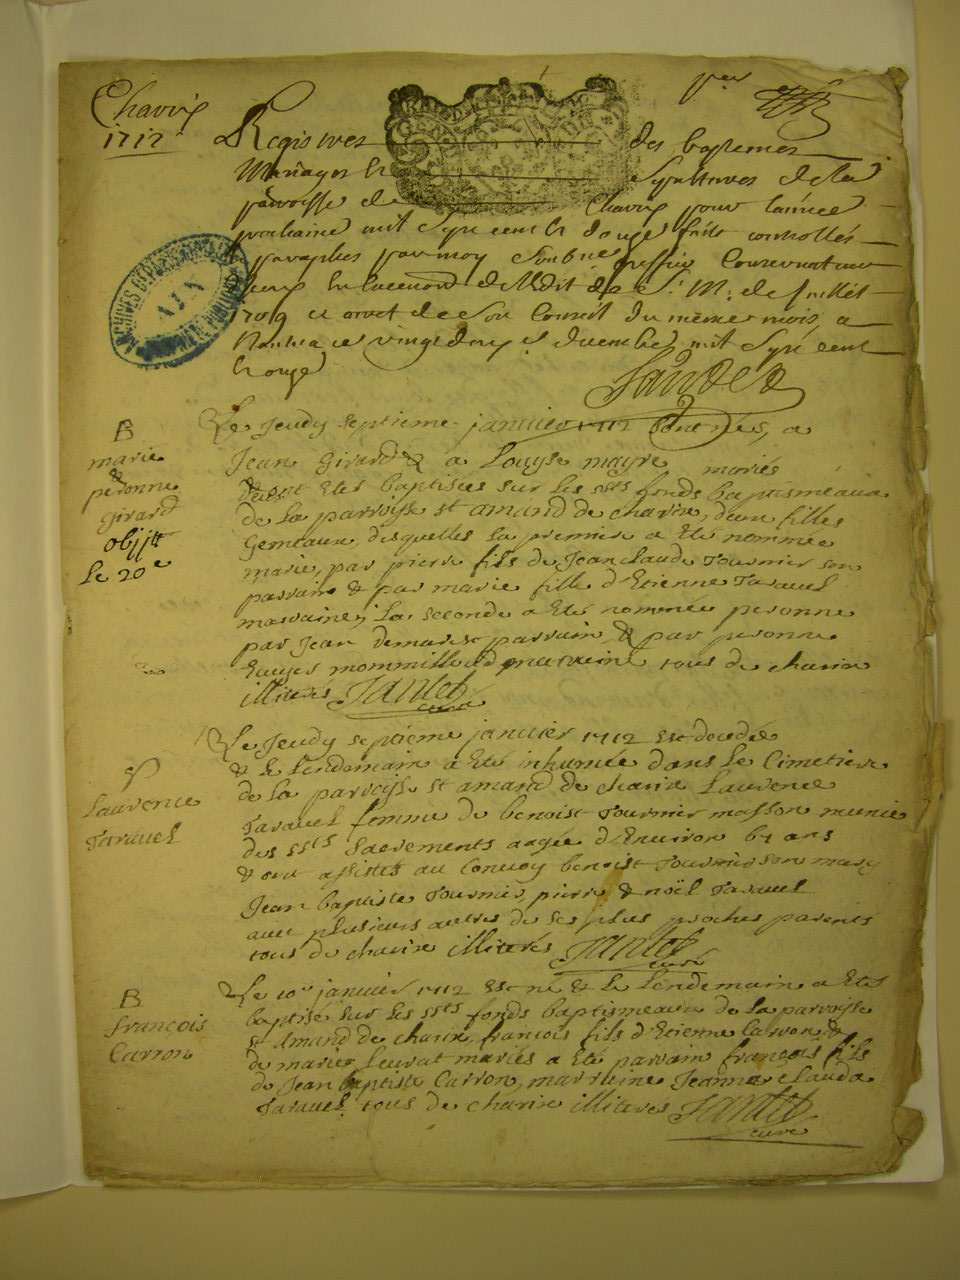 Charix
1712
Registres des baptemes
Mariages et Sepultures de la
paroisse de Charix pour l'année
prochaine mil Sept cent douze
paraphés par moy Conservateur
1709 et arret de Son Conseil du même mois, a
Nantua ce vingt deux decembre mil Sept cent
onze
ARCHIVES DEPARTEMENTALES
AIN
B
marie
&
peronne
girard
obijtt
Le 20e
Le Jeudy septieme janvier 1712 sont nés, a
Jean Girard & a Louyse mayre mariés
& ont etes baptisées sur les ssts fonds baptismeaux
de la parroisse st amand de charix, deux filles
Gemeaux, desquelles la premiere a eté nommée
marie, par pierre fils de Jean claude Tournier son
parrain & par marie fille d'Etienne Taravel
marraine, la seconde a eté nommée peronne
par Jean parrain & par peronne
marraine tous de charix
illiterés Jantet
curé
S
Laurence
Taravel
Le Jeudy septieme janvier 1712 est decedée
& le Lendemain a eté inhumée dans le Cimetiere
de la parroisse st amand de charix Laurence
Taravel femme de benoist Tournier masson munie
des ssts sacrements aagée d'Environ 61 ans
& ont assistés au Convoy benoist Tournier son mary
Jean baptiste Tournier pierre & noël Taravel
avec plusieurs autres de ses plus proches parents
tous de charix illiterés Jantet
curé
B
françois
Carron
Le 10e janvier 1712 est né & le Lendemain a eté
baptisé sur les ssts fonds baptismeaux de la parroisse
st Amand de charix, françois fils d'Etienne Carron &
de marie Leurat mariés a eté parrain françois fils
de Jean baptiste Carron, marreine Jeanne claude
Taravel tous de charix illiterés Jantet
curé